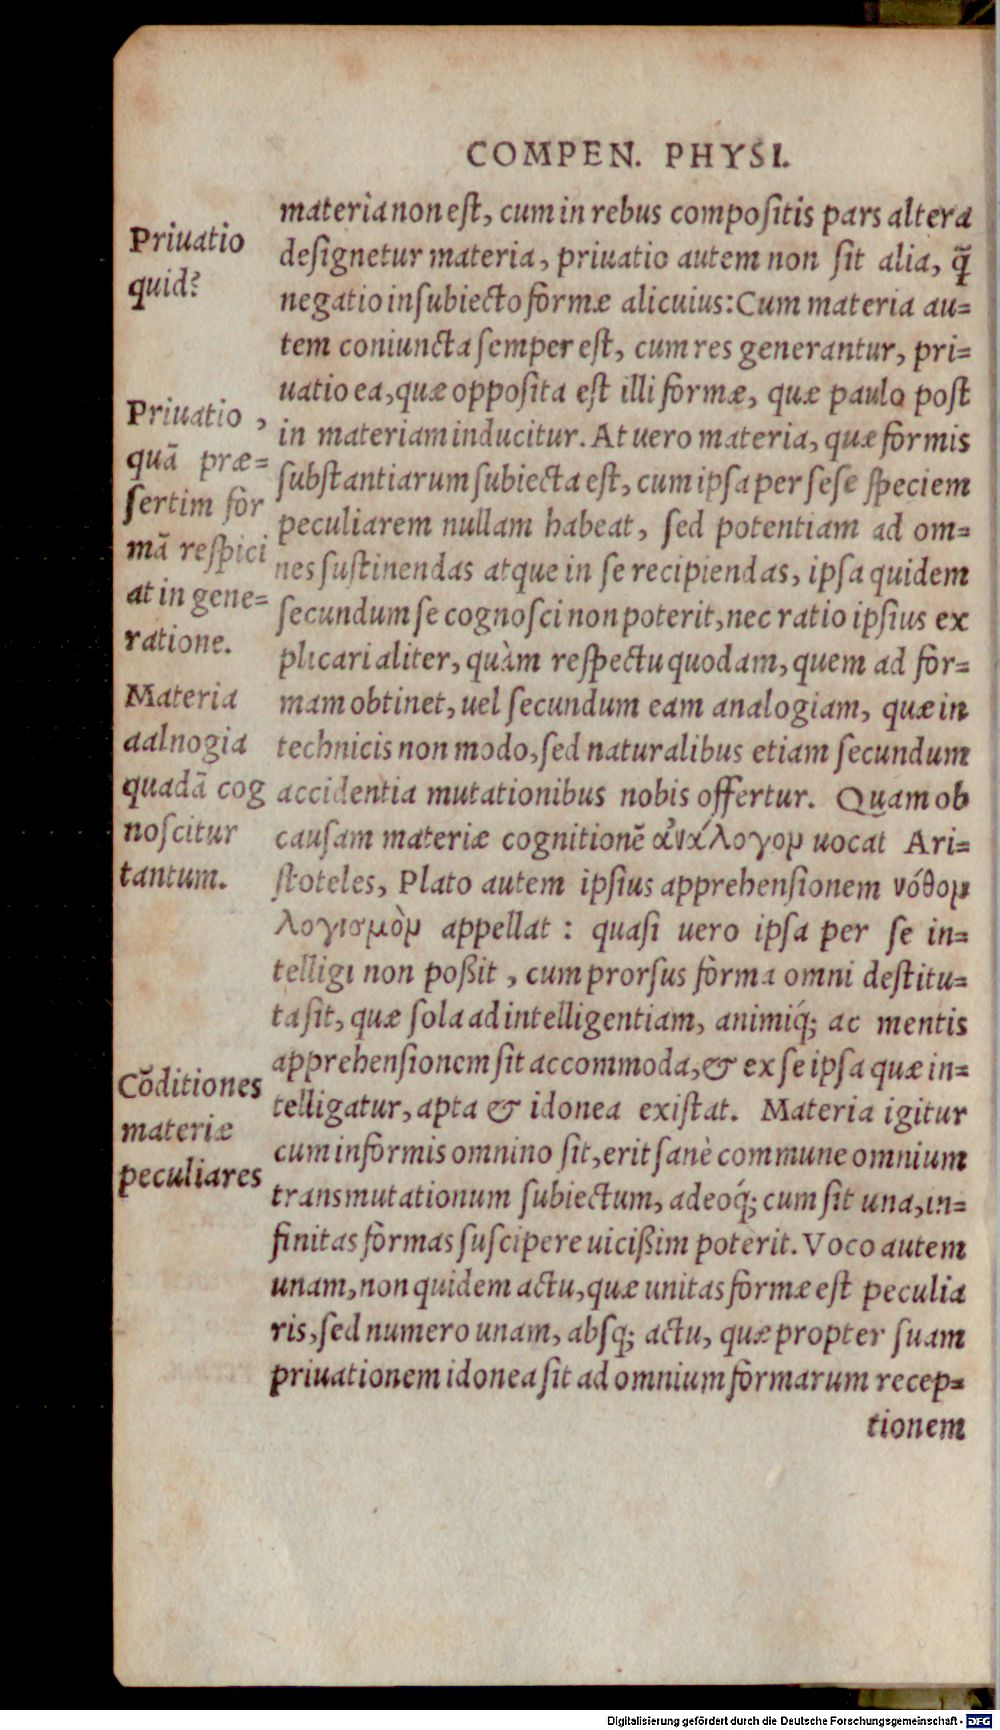 COMPEN. PHYSI.
Priuatio
quid?
Priuatio,
quā præ=
sertim for
mā respici
at in gene=
ratione.
Materia
aalnogia
quadā cog
noscitur
tantum.
Cōditiones
materiæ
peculiares
materia non est, cum in rebus compositis pars altera
designetur materia, priuatio autem non sit alia, q̃
negatio in subiecto formæ alicuius: Cum materia au=
tem coniuncta semper est, cum res generantur, pri=
uatio ea, quæ opposita est illi formæ, quæ paulo post
in materiam inducitur. At uero materia, quæ formis
substantiarum subiecta est, cum ipsa per sese speciem
peculiarem nullam habeat, sed potentiam ad om=
nes sustinendas atque in se recipiendas, ipsa quidem
secundum se cognosci non poterit, nec ratio ipsius ex
plicari aliter, quàm respectu quodam, quem ad for=
mam obtinet, uel secundum eam analogiam, quæ in
technicis non modo, sed naturalibus etiam secundum
accidentia mutationibus nobis offertur. Quam ob
causam materiæ cognitionē ἀνάλογον uocat Ari=
stoteles, Plato autem ipsius apprehensionem νόθον
λογισμὸν appellat : quasi uero ipsa per se in=
telligi non poßit, cum prorsus forma omni destitu=
ta sit, quæ sola ad intelligentiam, animiq́; ac mentis
apprehensionem sit accommoda, & ex se ipsa quæ in=
telligatur, apta & idonea existat. Materia igitur
cum informis omnino sit, erit sanè commune omnium
transmutationum subiectum, adeoq́; cum sit una, in=
finitas formas suscipere uicißim poterit. Voco autem
unam, non quidem actu, quæ unitas formæ est peculia
ris, sed numero unam, absq; actu, quæ propter suam
priuationem idonea sit ad omnium formarum recep=
tionem
Digitalisierung gefördert durch die Deutsche Forschungsgemeinschaft - DFG